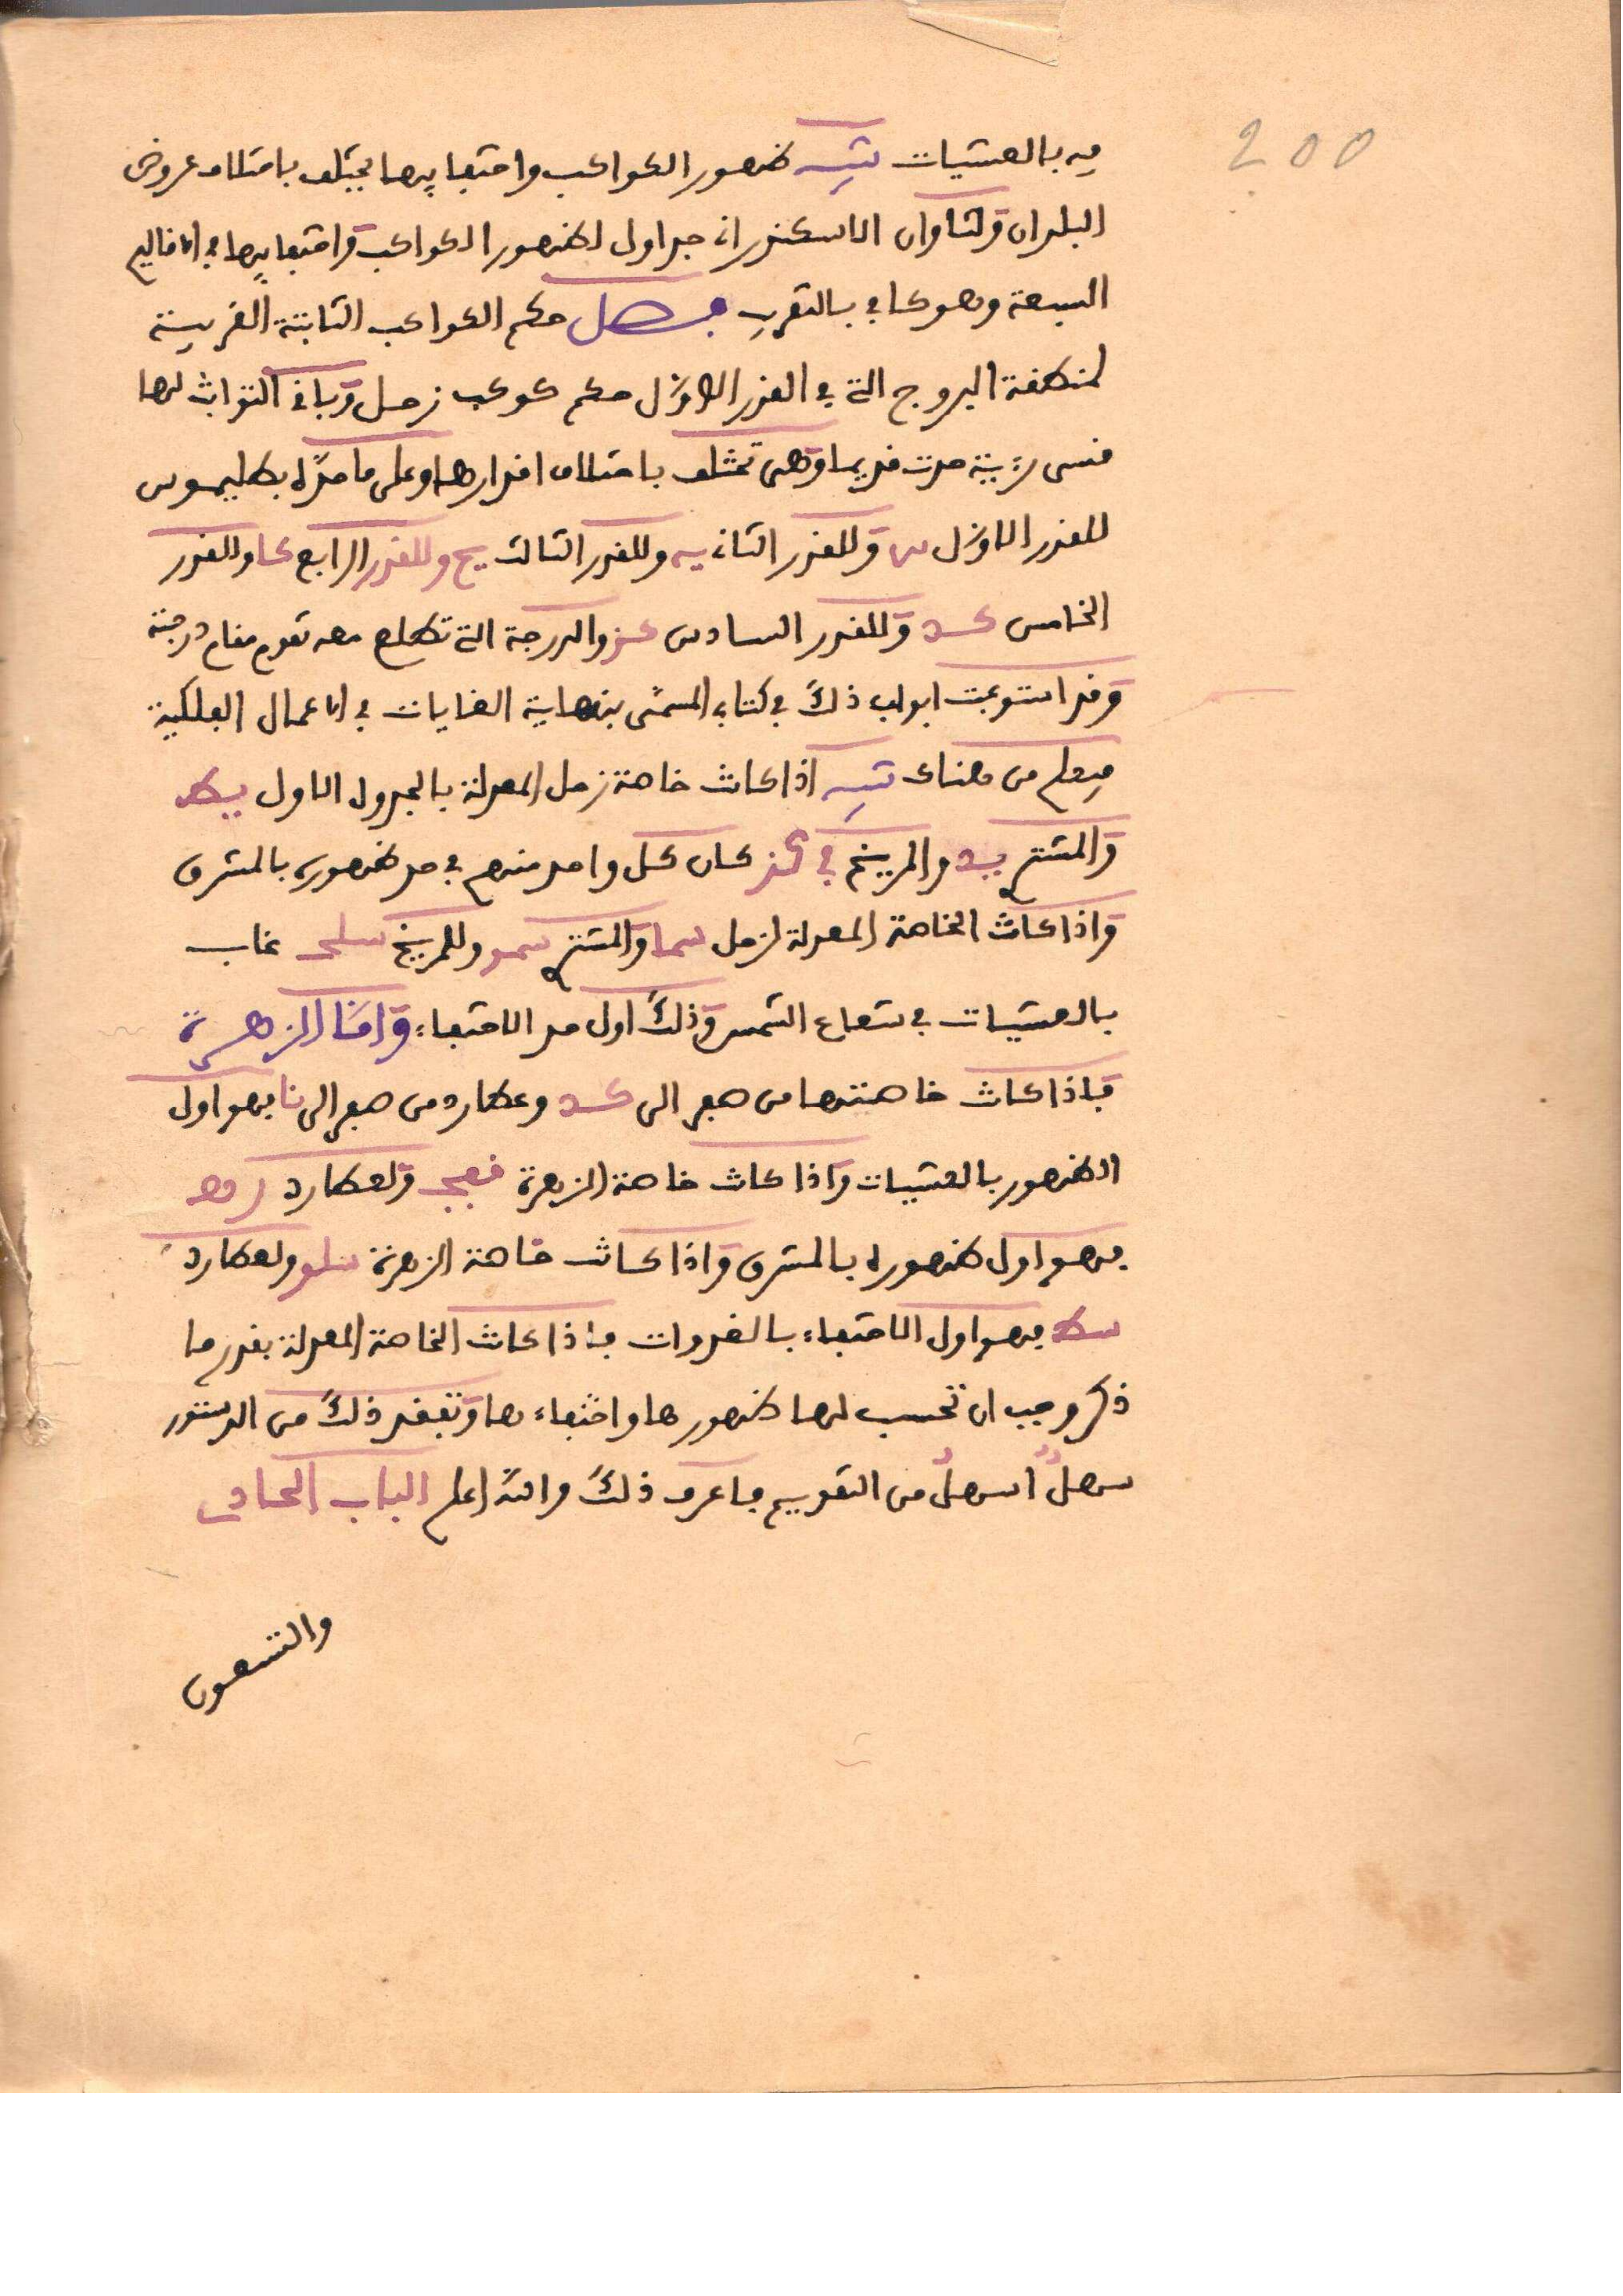 200
فيه بالعشيات تنبيه ظهور الكواكب واختفايها يختلف باختلاف عروض
البلدان ولثاوان الاسكندراني جداول لظهور الكواكب واختفايها في الاقاليم
السبعة وهو كافي بالتقريب فصل حكم الكواكب الثابتة القريبة
لمنطقة البروج التي في القدر الاول حكم كوكب زحل وباقي الثوابث لها
قسى حدت قديما وهي تختلف باختلاف اقدارها وعلى ما حده بطليموس
للقدر الاول وللقدر الثاني يه وللقدر الثالث يح وللقدر الرابع كا وللقدر
الخامس كد وللقدر السادس كز والدرجة التي تطلع معه تقوم مقام درجته
وقد استوعبت ابواب ذلك في كتابي المسمى بنهاية الغايات في الاعمال الفلكية
فيعلم من هناك تنبيه اذا كاث خاصة زحل المعدلة بالجدول الاول يط
والمشتري يد والمريخ في كز كان كل واحد منهم في حد ظهوره بالمشرق
واذا كاث الخاصة المعدلة لزحل سما والمشتري سمو وللمريخ سلح غاب
بالعشيات في شعاع الشمس وذلك اول حد الاختفاء وامّا الزهرة
فاذا كاث خاصتها من صفر الى كد وعطارد من صفر الى نا فهو اول
الظهور بالعشيات واذا كاث خاصة الزهرة قفج ولعطارد
فهو اول ظهوره بالمشرق واذا كاث خاصة الزهرة سلو ولعطارد
سط فهو اول الاختفاء بالغدوات فاذا كاث الخاصة المعدلة بقدر ما
ذكر وجب ان تحسب لها ظهورها واختفاءها وتفقد ذلك من الدستور
سهل اسهل من التقويم فاعرف ذلك والله اعلم الباب الحادي
والتسعون